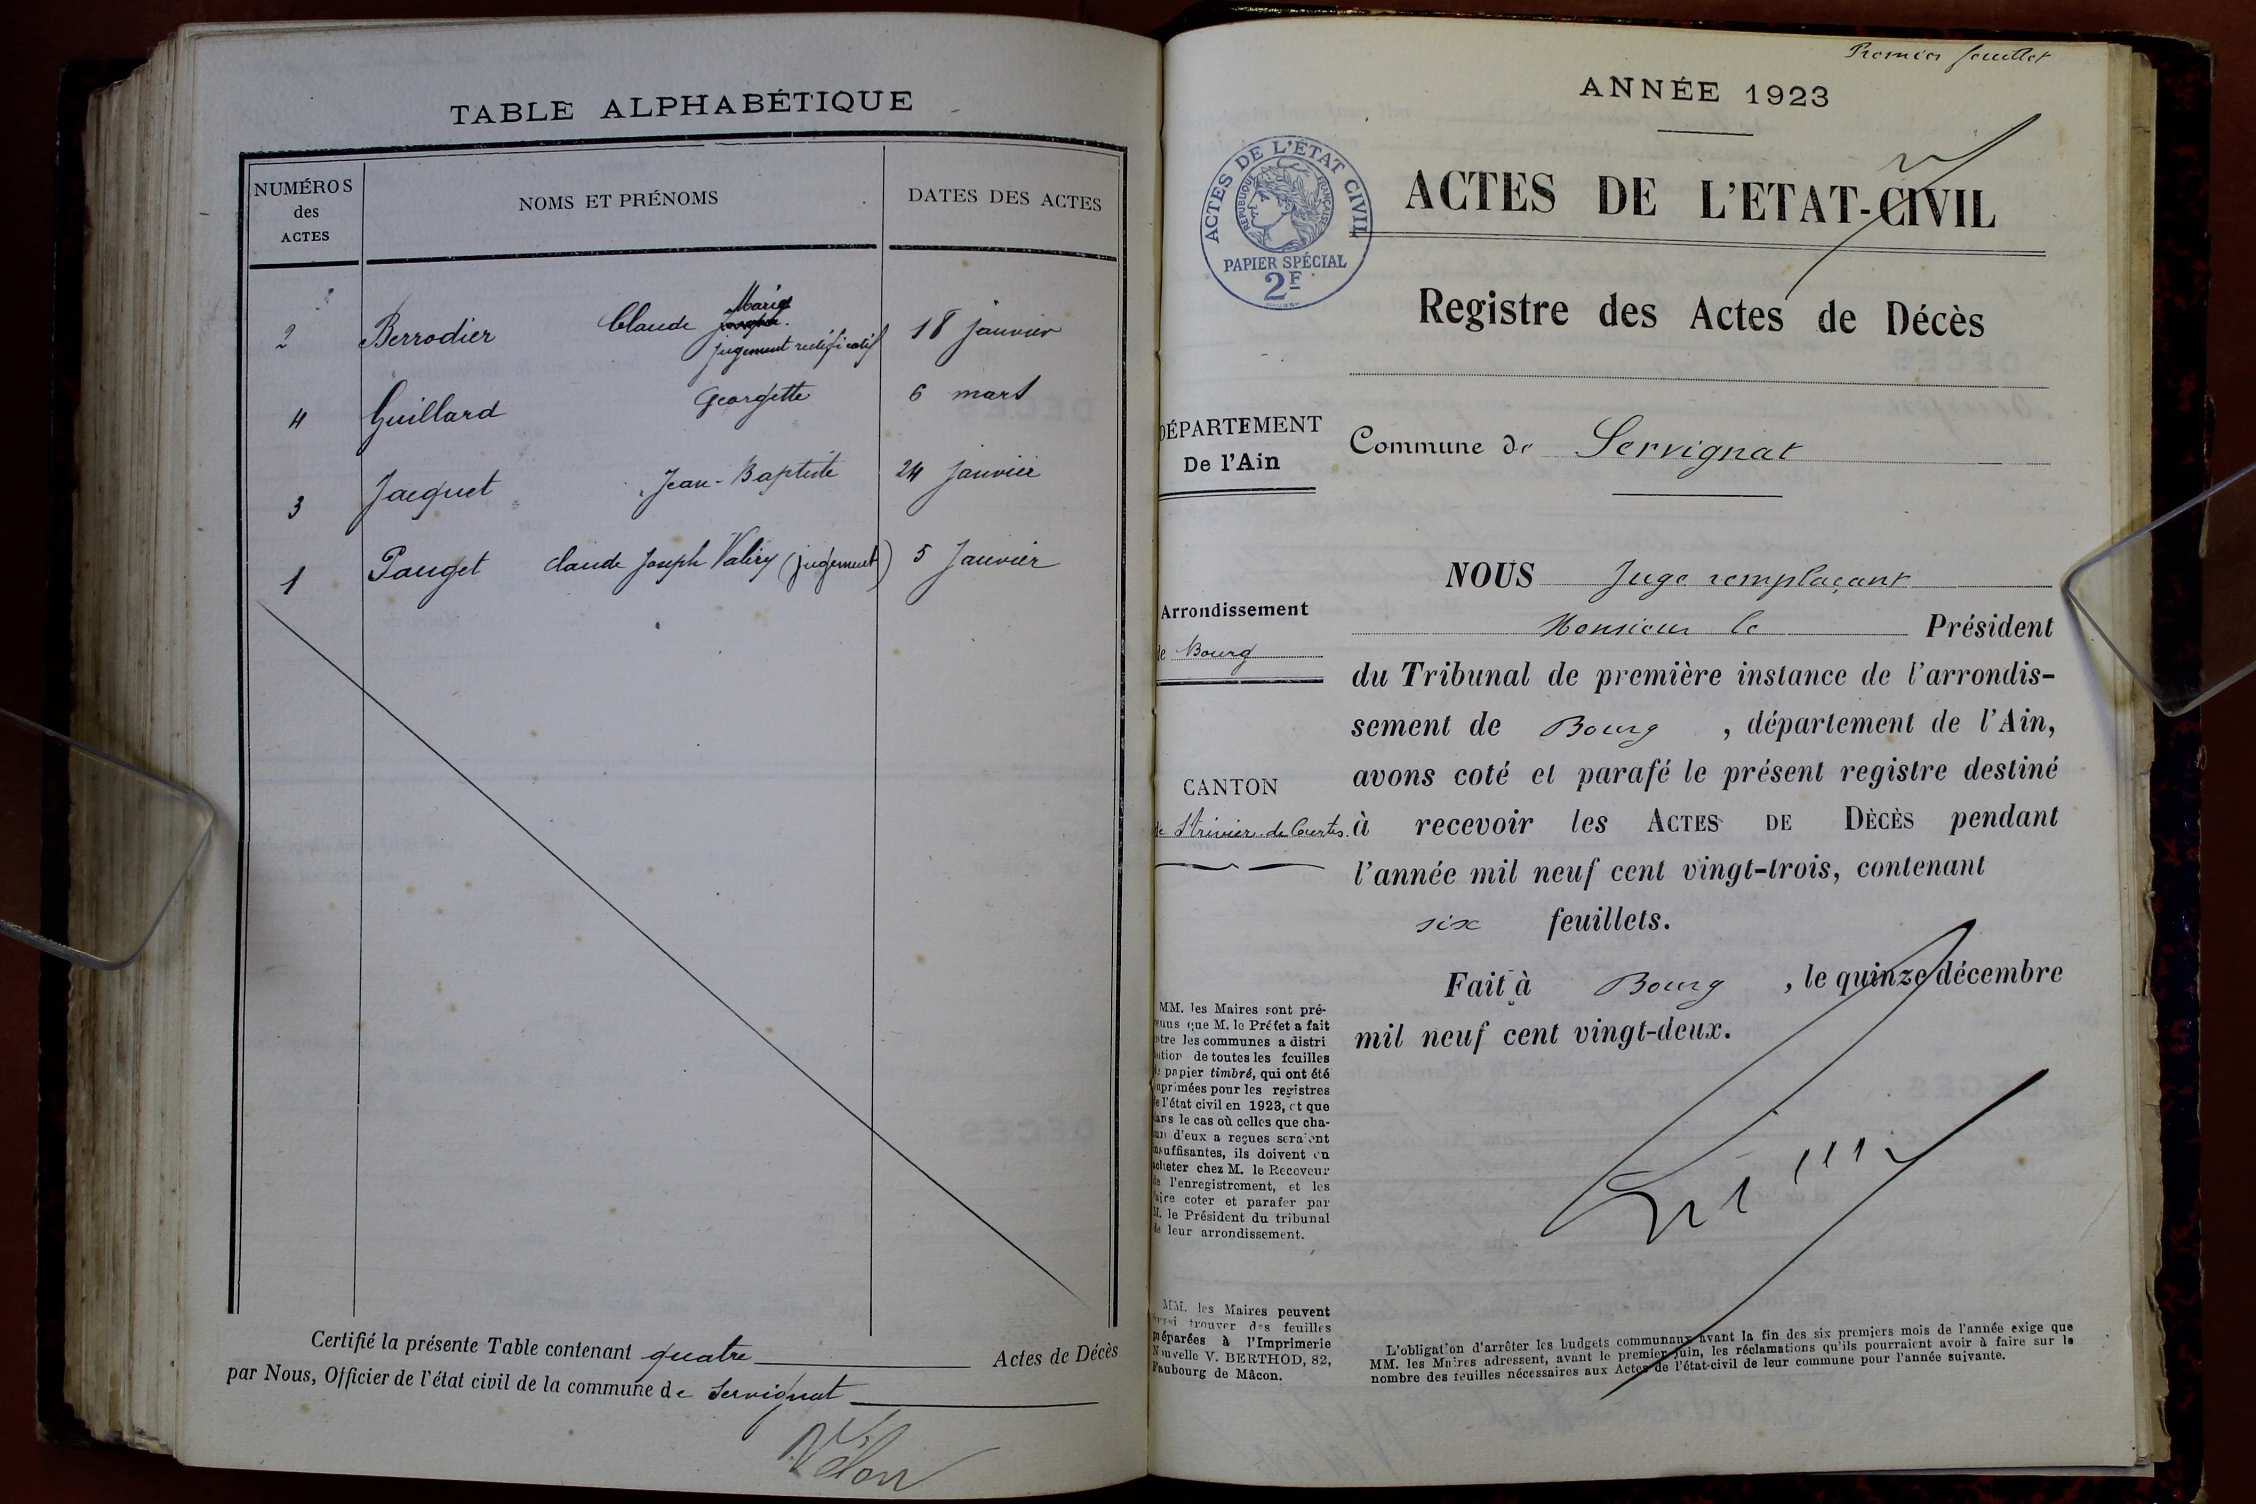 TABLE ALPHABÉTIQUE
NUMÉROS
des
ACTES
NOMS ET PRÉNOMS
DATES DES ACTES
2 Berrodier Claude Marie 18 janvier
jugement rectificatif
4 Guillard Georgette 6 mars
3 Jacquet Jean-Baptiste 24 janvier
1 Pauget claude Joseph Valéry (jugement) 5 Janvier
Certifié la présente Table contenant quatre Actes de Décès
par Nous, Officier de l'état civil de la commune de Servignat
Premier feuillet
ANNÉE 1923
ACTES DE L'ÉTAT CIVIL
RÉPUBLIQUE FRANÇAISE
PAPIER SPÉCIAL
2F
ACTES DE L'ETAT-CIVIL
Registre des Actes de Décès
DÉPARTEMENT
De l'Ain
Commune de Servignat
Arrondissement
de Bourg
CANTON
de St Trivier-de-Courtes.
NOUS Juge remplaçant
Monsieur le Président
du Tribunal de première instance de l'arrondis-
sement de Bourg , département de l'Ain,
avons coté et parafé le présent registre destiné
à recevoir les ACTES DE DÉCÈS pendant
l'année mil neuf cent vingt-trois, contenant
six feuillets.
Fait à Bourg , le quinze décembre
mil neuf cent vingt-deux.
MM. les Maires sont pré-
venus que M. le Préfet a fait
entre les communes a distri
bution de toutes les feuilles
de papier timbré, qui ont été
imprimées pour les registres
de l'état civil en 1923, et que
dans le cas où celles que cha-
cun d'eux a reçues seraient
insuffisantes, ils doivent en
acheter chez M. le Receveur
de l'enregistrement, et les
faire coter et parafer par
M. le Président du tribunal
de leur arrondissement.
MM. les Maires peuvent
aussi trouver des feuilles
préparées à l'Imprimerie
Nouvelle V. BERTHOD, 82,
Faubourg de Mâcon.
L'obligation d'arrêter les budgets communaux avant la fin des six premiers mois de l'année exige que
MM. les Maires adressent, avant le premier juin, les réclamations qu'ils pourraient avoir à faire sur le
nombre des feuilles nécessaires aux Actes de l'état-civil de leur commune pour l'année suivante.